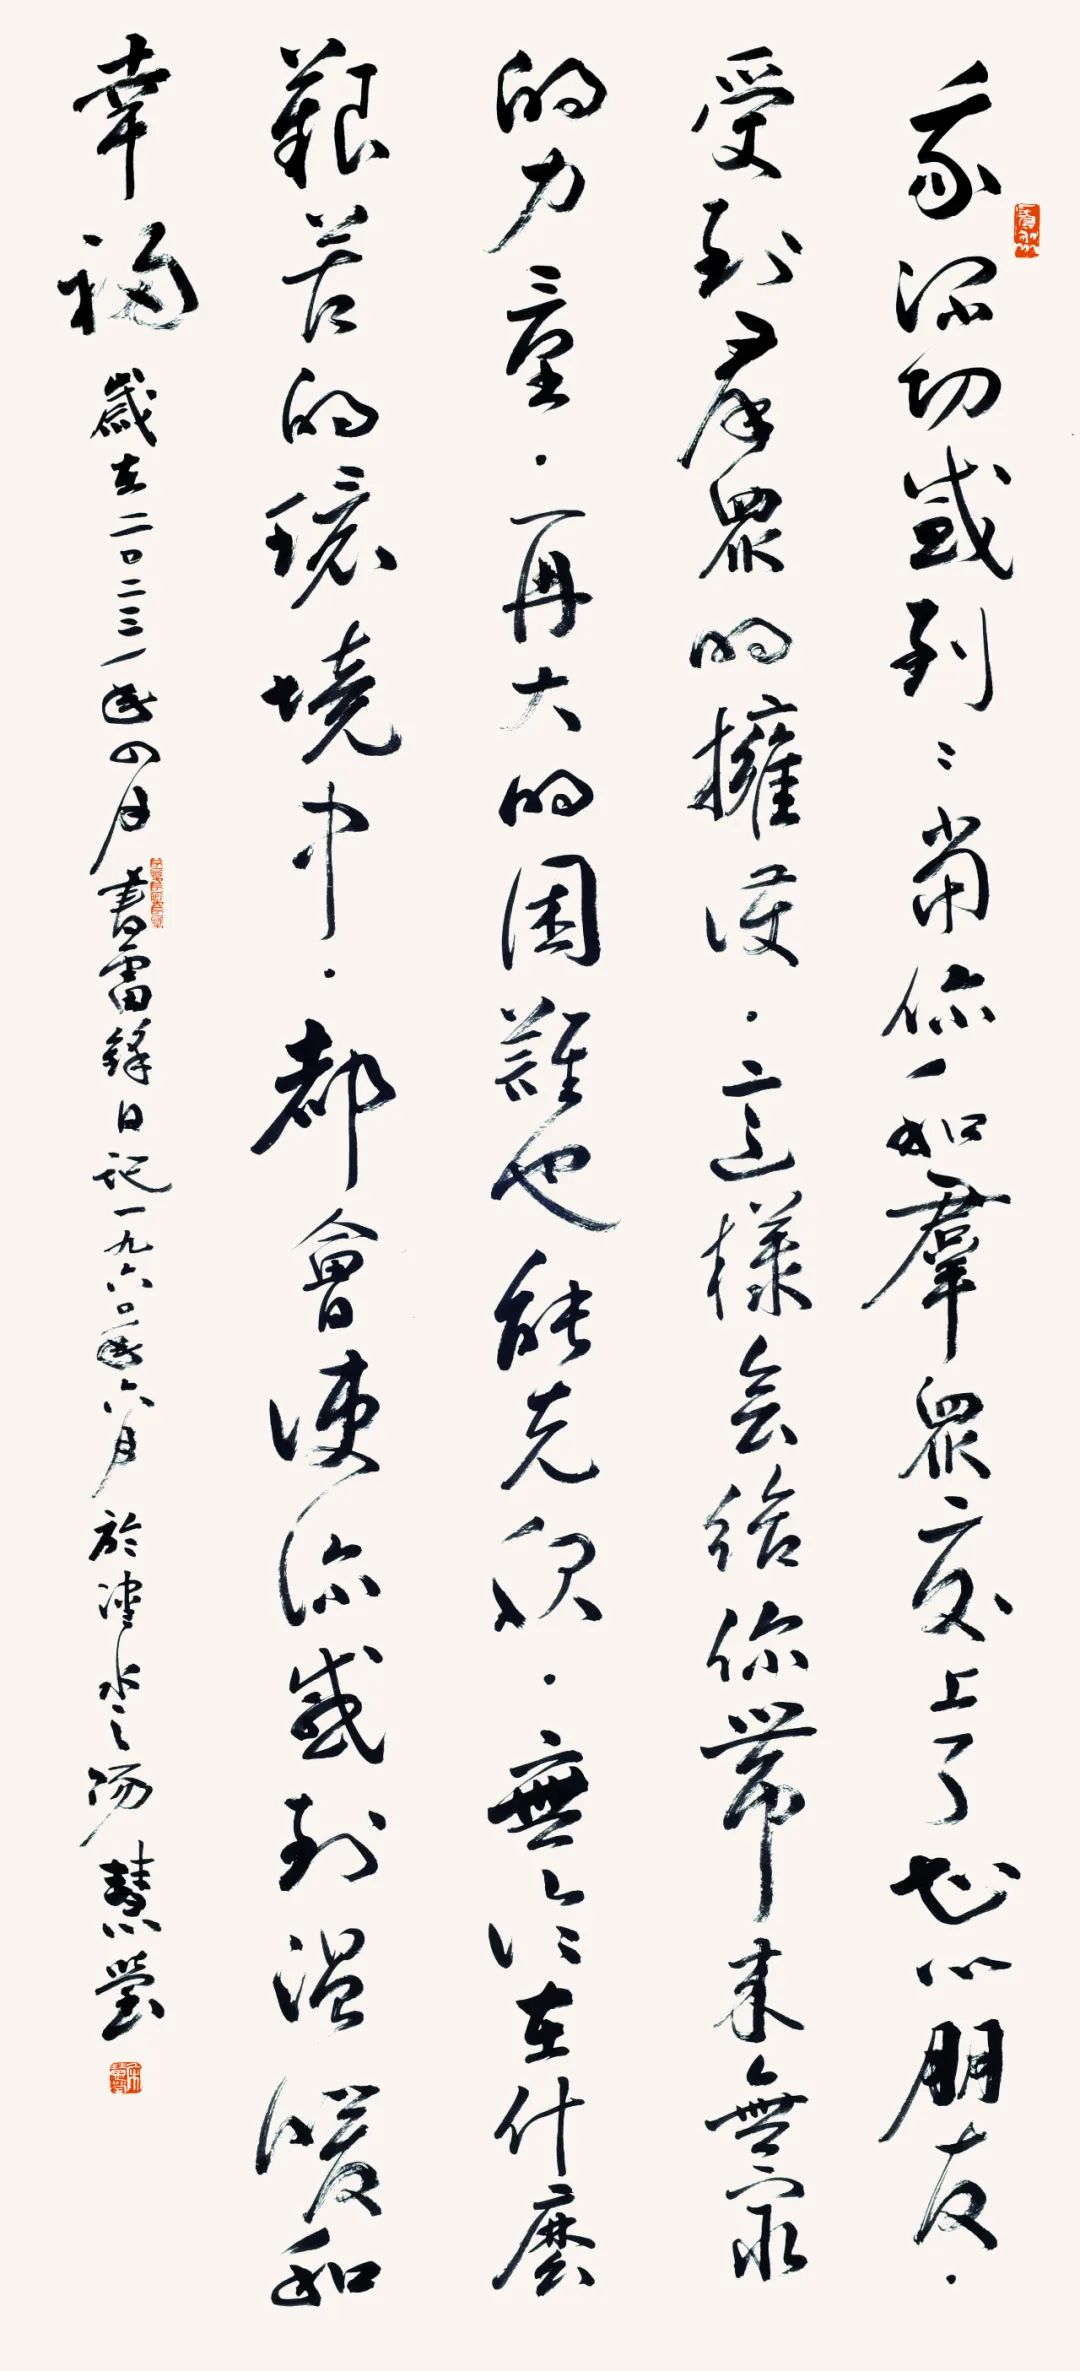 我深切感到：當你一和羣眾交上了知心朋友·
受到群眾的擁護·這樣会給你帶來無窮
的力量·再大的困難也能克服·無論在什麼
艱苦的環境中·都會使你感到溫暖和
幸福 歲在二〇二三年四月書雷鋒日記一九六〇年六月於水之陽 慧瑩